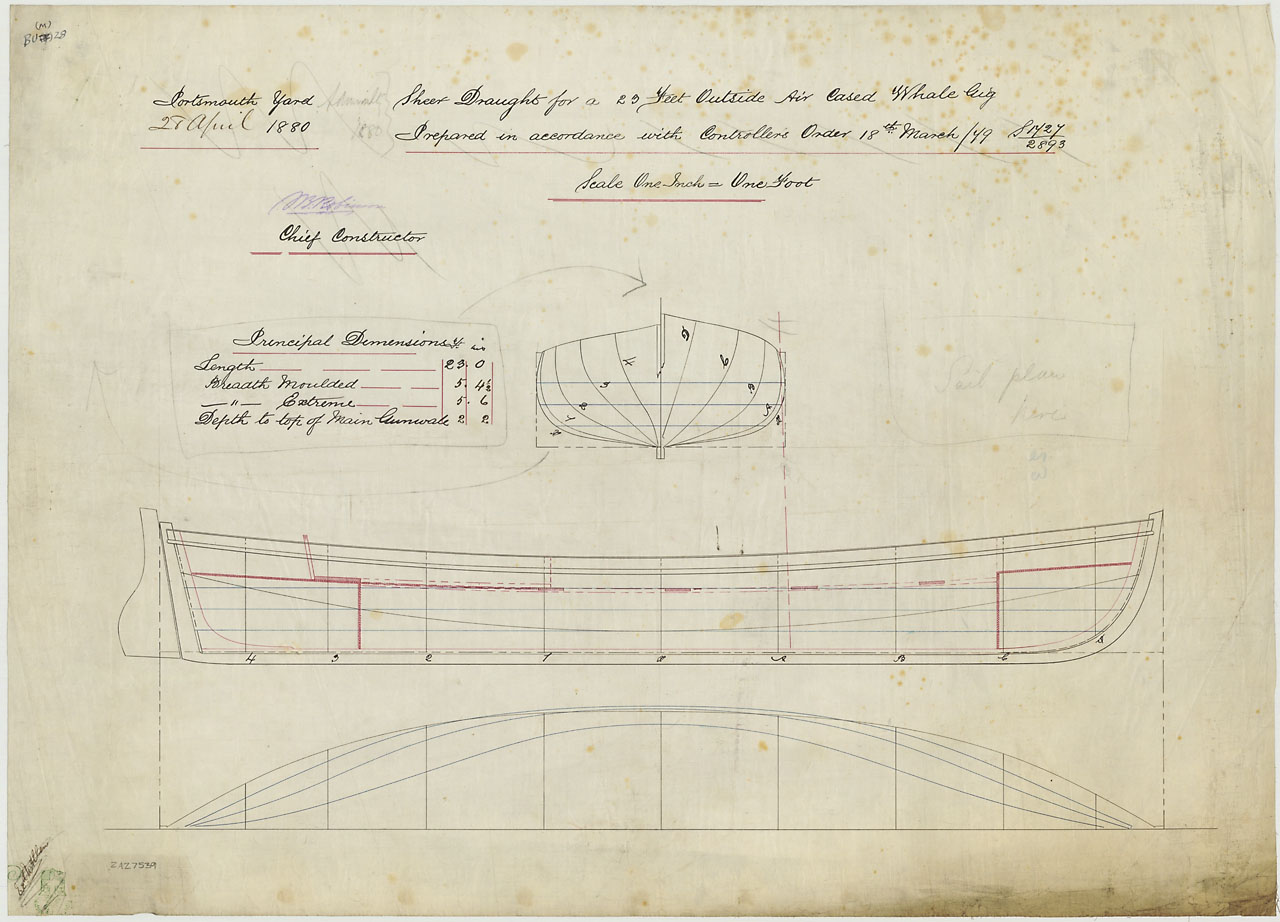 (M)
Portsmouth Yard
April 1880
Sheer Draught for a 23 Feet Outside Air Cased Whale Gig
Prepared in accordance with Controller's Order 18th March/79 S1727/2893
Scale One Inch = One Foot
Chief Constructor
Principal Dimensions ft in
Length 23. 0
Breadth Moulded 5. 4½
—"— Extreme 5. 6
Depth to top of Main Gunwale 2 2
Sail plan
here
4 3 2 1 A B C
ZAZ7539